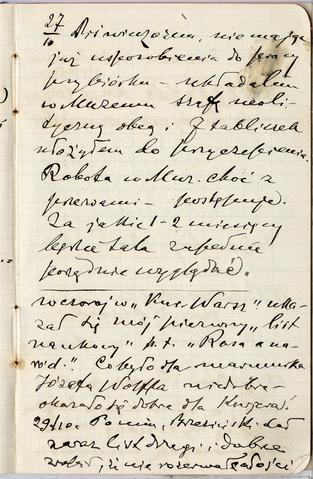 27/10 Dziś wieczorem, nie mając
już usposobienia do pracy
przy biórku – układałem
w Muzeum szafę neoli-
tyczną obcą i 7 tabliczek
włożyłem do przyczepienia.
Robota w Muz. choć z
przerwami – postępuje.
Za jakie 1–2 miesięcy
będzie sala zupełnie
porządnie wyglądać.
wczoraj w „Kur. Warsz" uka-
zał się mój pierwszy „list
naukowy" p. t. „Rasa a na-
ród". Co było dla
Józefa Wolffa niedobre
okazało się dobre dla Kurjera!
29/10 Pomim, Brzeziński dał
zaraz list drugi i dobrze
zrobił, że nie rozerwał całości